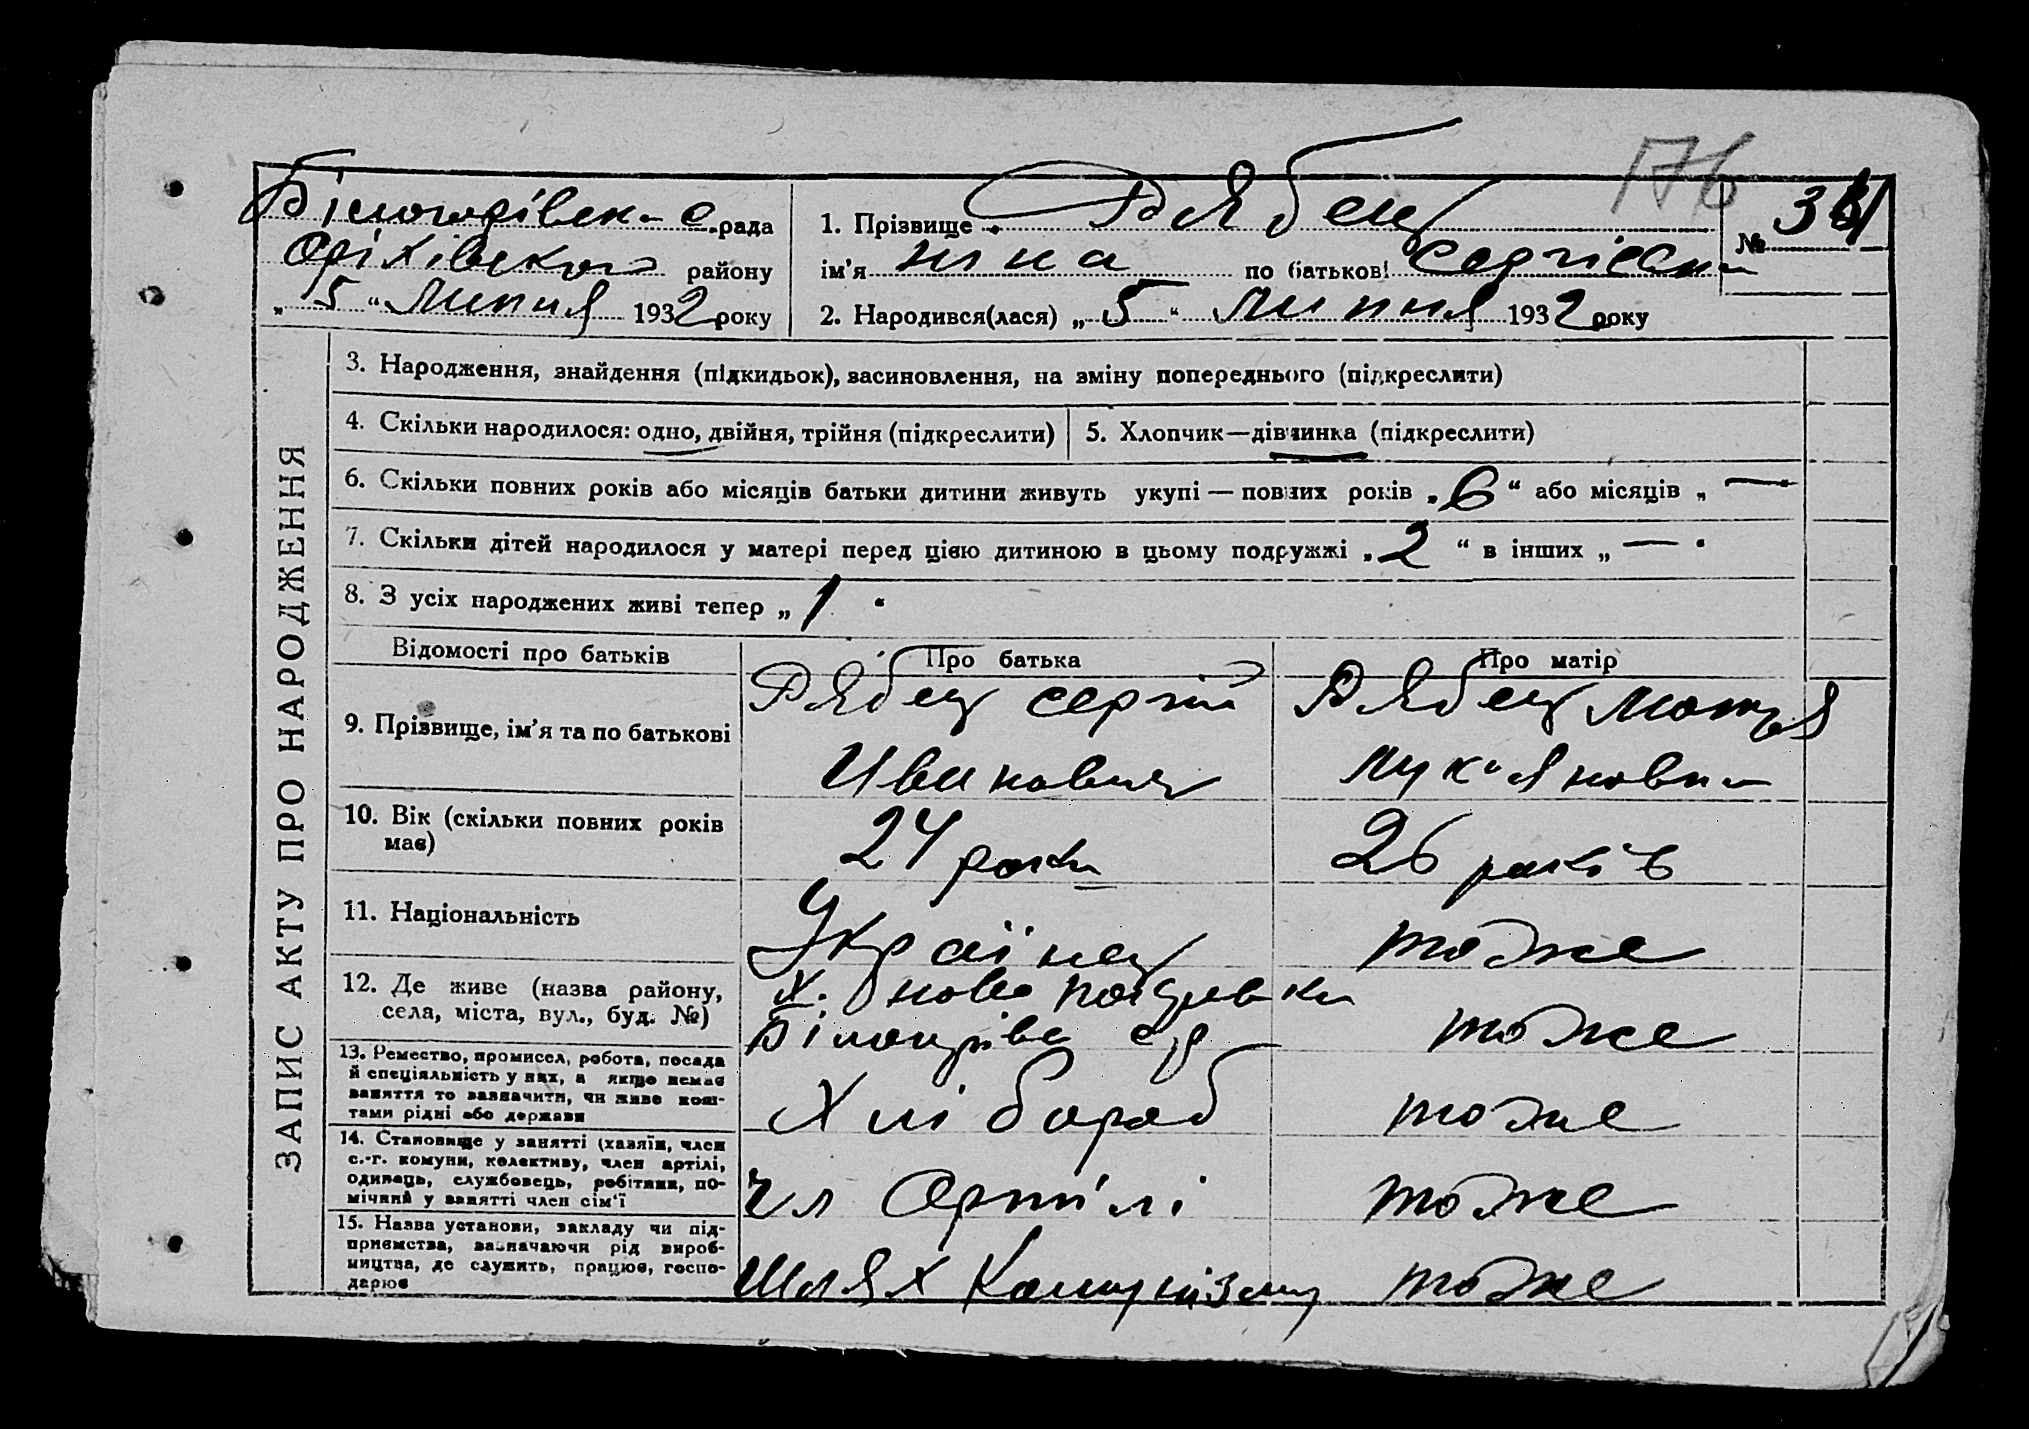 176
Білогорівск. с. рада
Оріхівского району
„ 5 “ Липня 1932 року
1. Прізвище Рябец № 31
ім’я Нина по батькові Сергієвна
2. Народився(лася) „ 5 “ Липня 1932 року
ЗАПИС АКТУ ПРО НАРОДЖЕННЯ
3. Народження, знайдення (підкидьок), засиновлення, на зміну попереднього (підкреслити)
4. Скільки народилося: одно, двійня, трійня (підкреслити) 5. Хлопчик—дівчинка (підкреслити)
6. Скільки повних років або місяців батьки дитини живуть укупі — повних років „ 6 “ або місяців „ —
7. Скільки дітей народилося у матері перед цією дитиною в цьому подружжі „ 2 “ в інших „ —
8. З усіх народжених живі тепер „ 1 “
Відомості про батьків Про батька Про матір
9. Прізвище, ім’я та по батькові
Рябец Сергій
Иванович
Рябец Мотря
Лук’яновна
10. Вік (скільки повних років
має)
24 роки 26 років
11. Національність Українец тоже
12. Де живе (назва району,
села, міста, вул., буд. №)
х. Ново
с/р
тоже
13. Ремество, промисел, робота, посада
й спеціяльність у них, а якщо немає
заняття то зазначити, чи живе кош-
тами рідні або держави
Хлібороб тоже
14. Становище у занятті (хазяїн, член
с.-г. комуни, колективу, член артілі,
одинець, службовець, робітник, по-
мічний у занятті член сім’ї
чл Артілі тоже
15. Назва установи, закладу чи під-
приємства, зазначаючи рід вироб-
ництва, де служить, працює, госпо-
дарює
Шлях Комунізму тоже